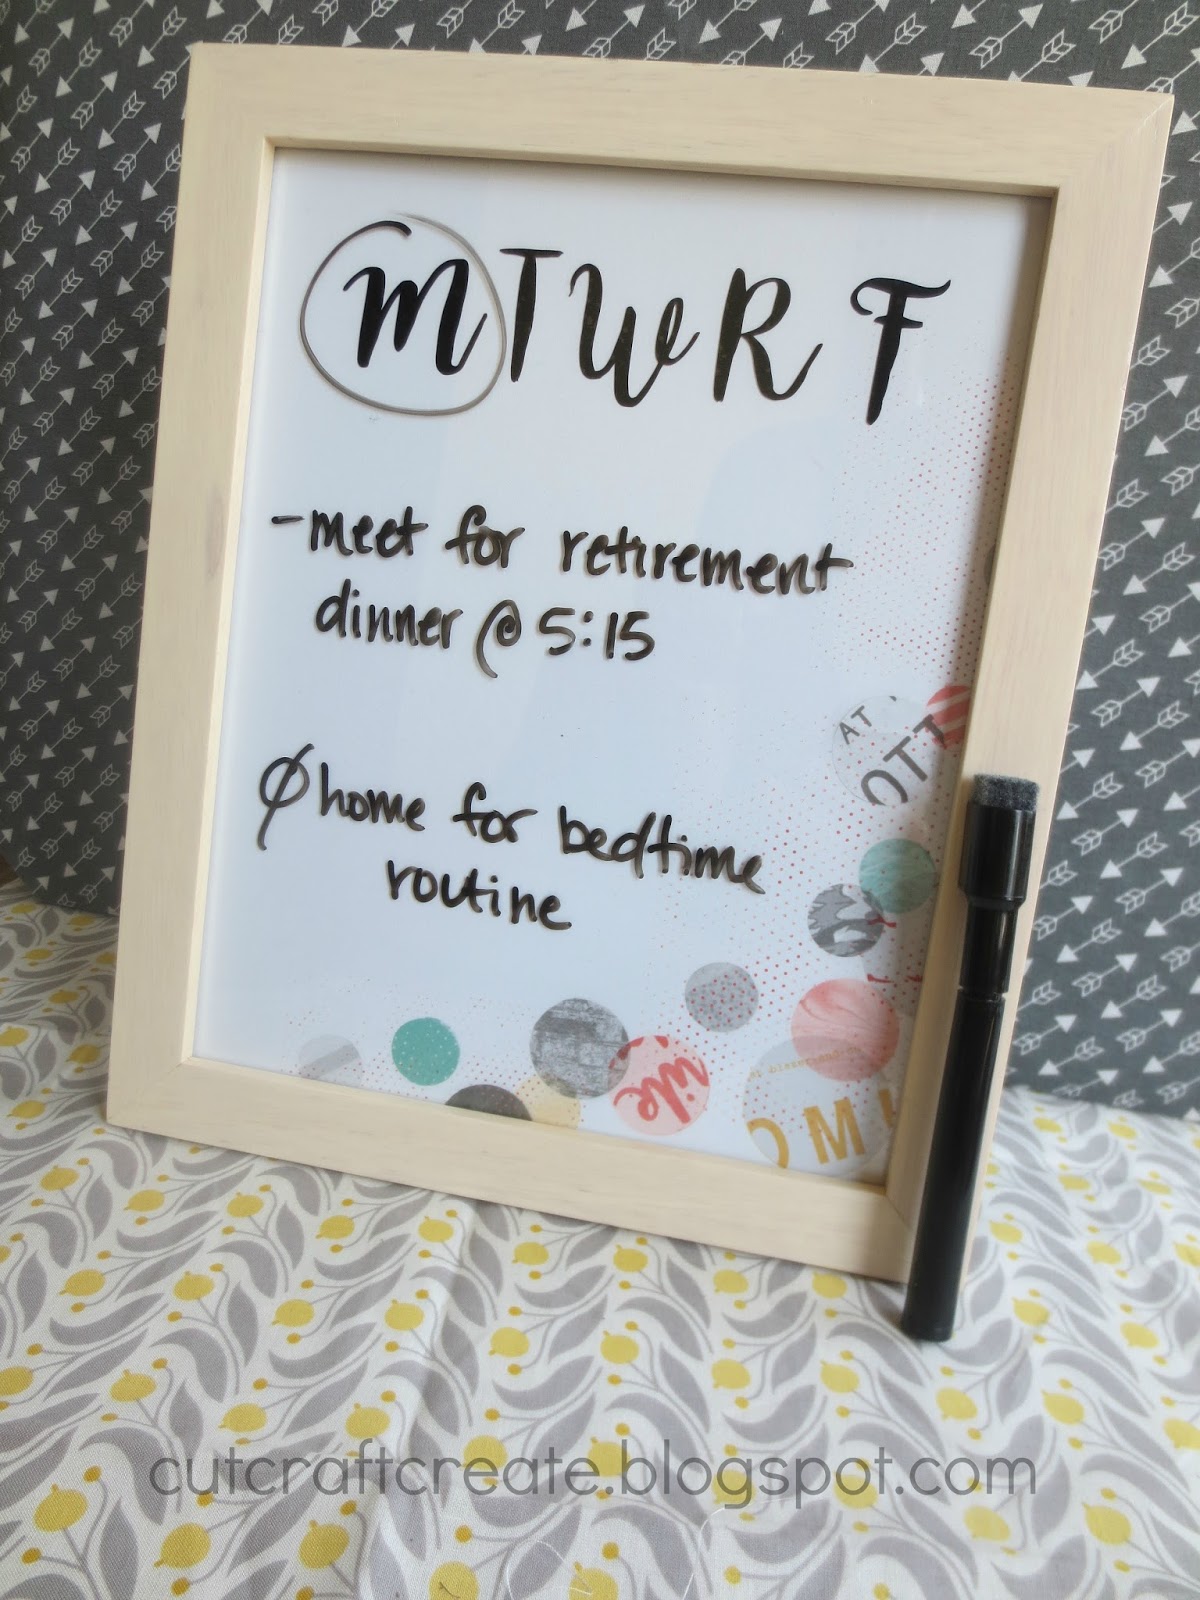 M T W R F
-meet for retirement
dinner @ 5:15
Ø home for bedtime
routine
AT
OTT
cutcraftcreate.blogspot.com